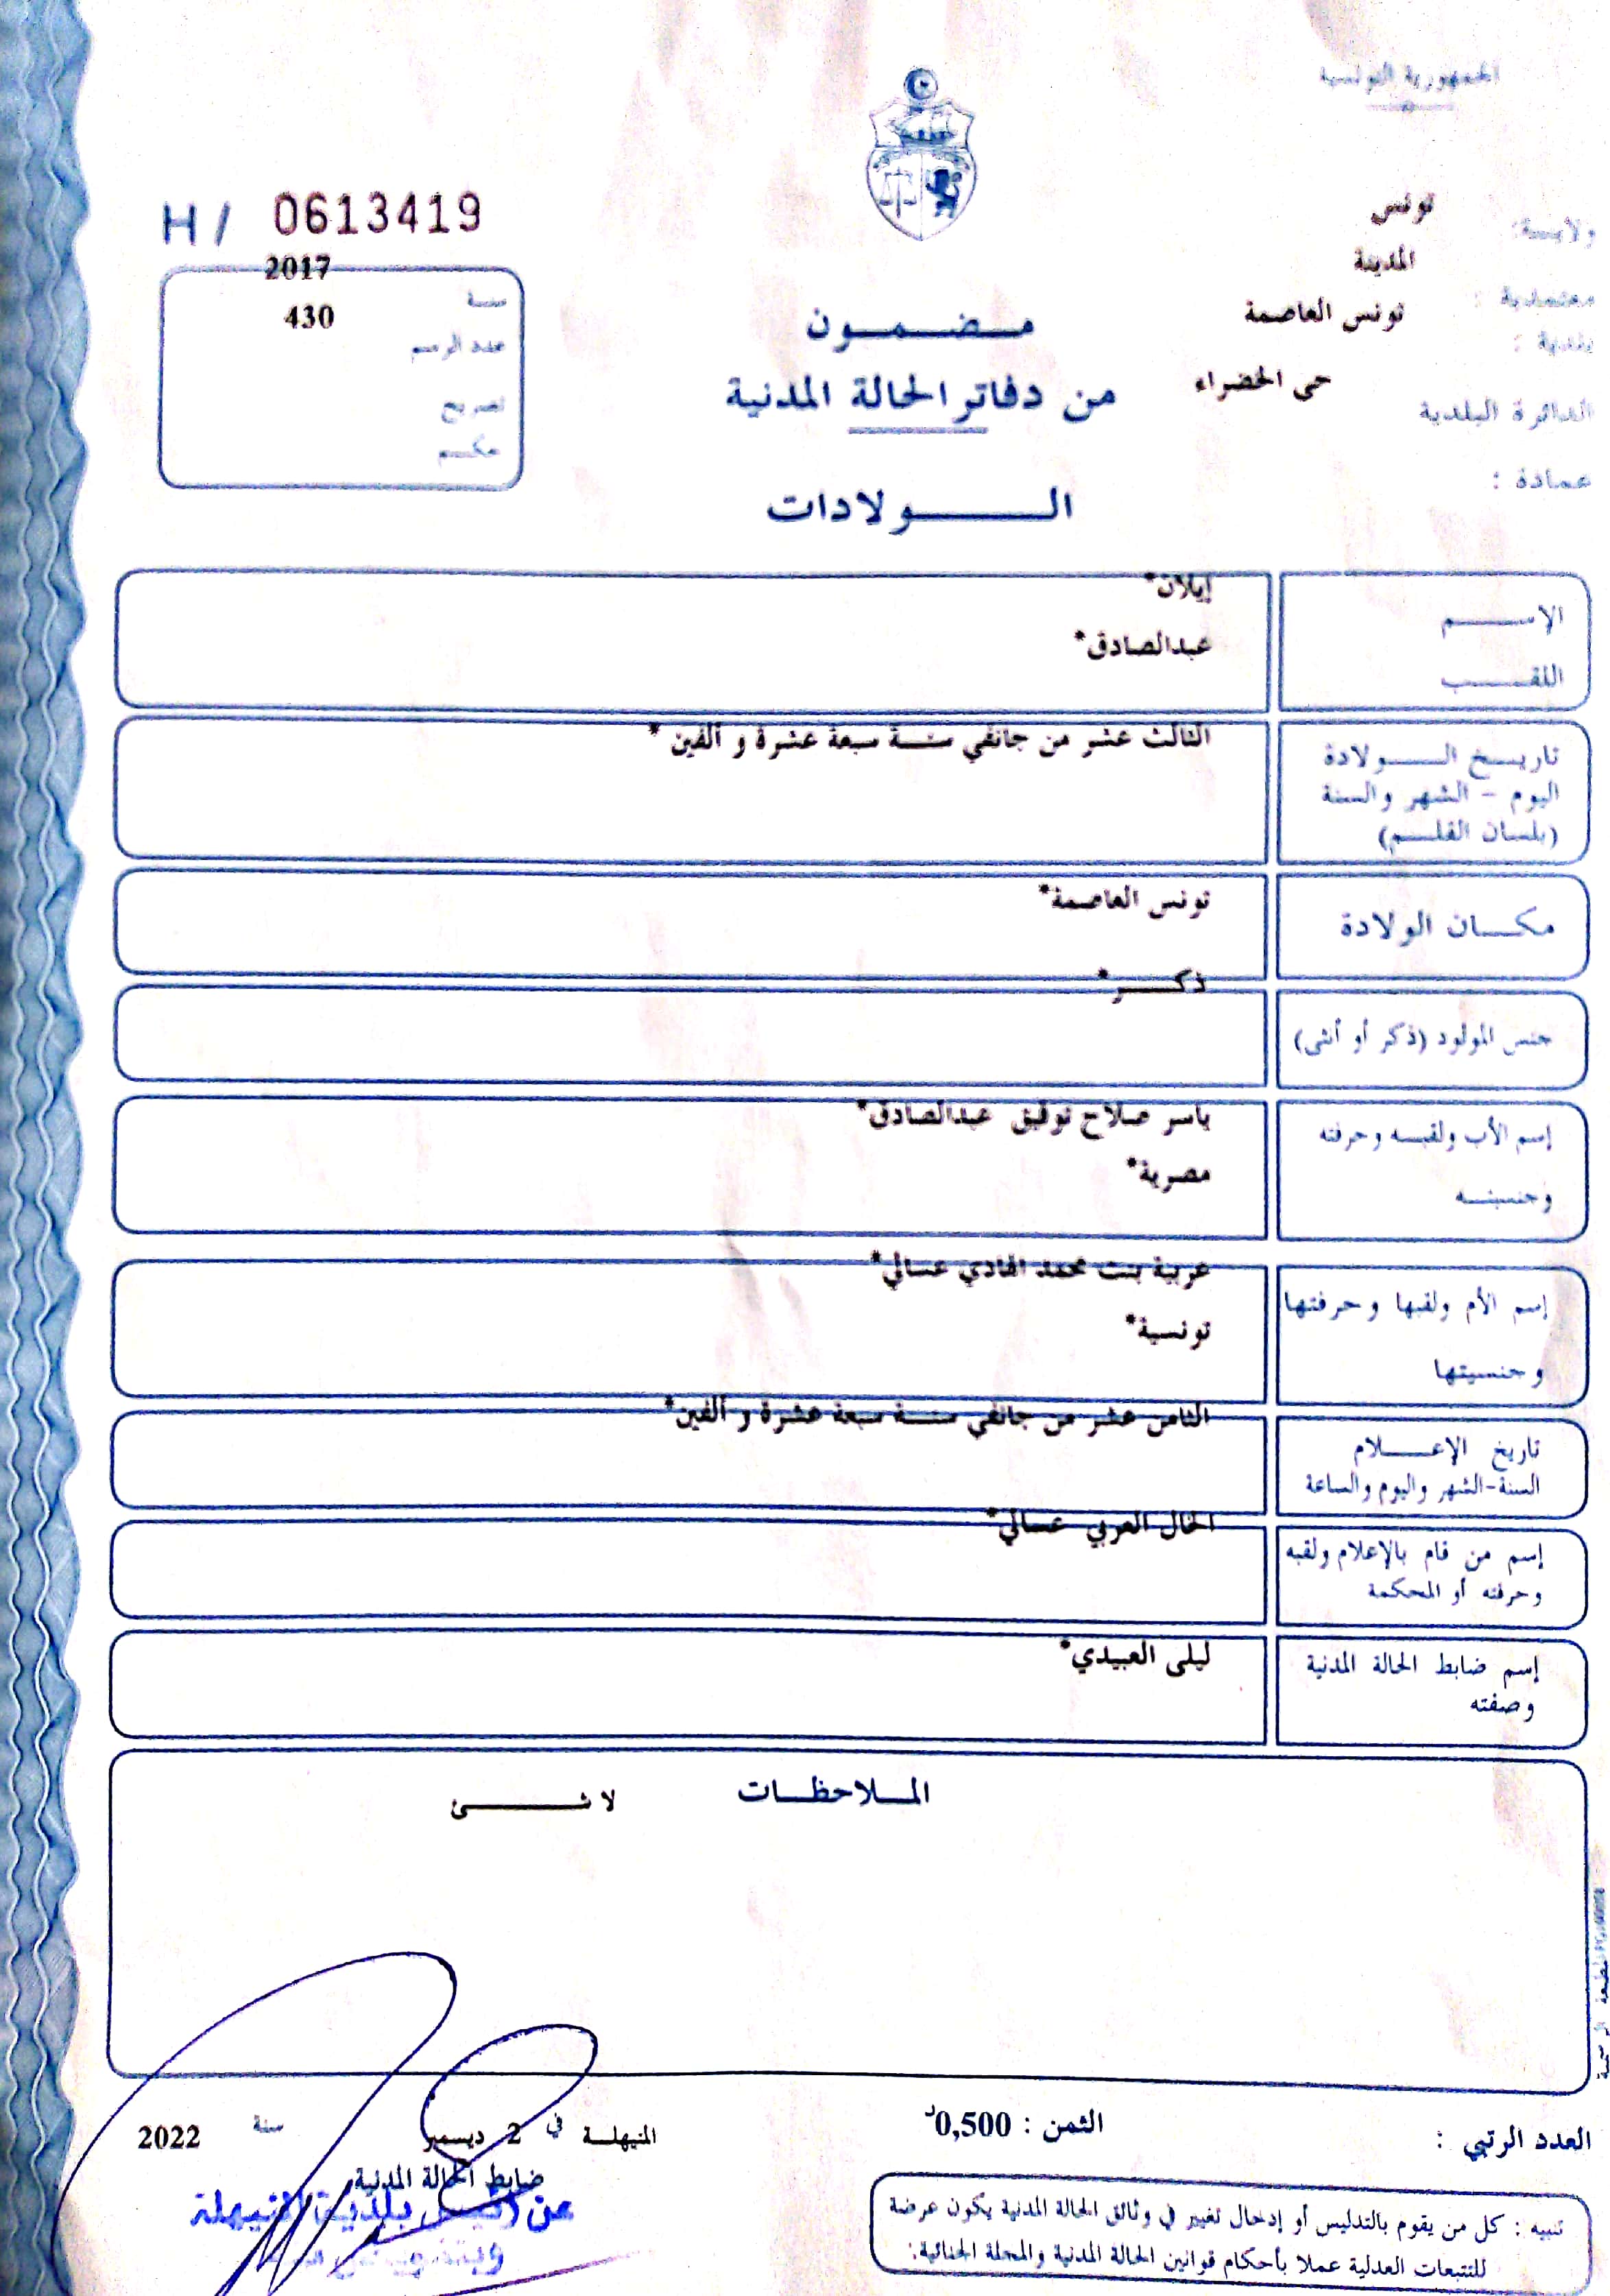 الجمهورية التونسية
H / 0613419
ولايـــة: تونس
معتمدية : المدينة
بلدية : تونس العاصمة
الدائرة البلدية حى الخضراء
عمـادة :
سنـة 2017
عدد الرسم 430
تصريح
حكـم
مـضـمـون
من دفاتر الحالة المدنية
الـــولادات
الإســـم إيلان*
اللقـــب عبدالصادق*
تاريـخ الـــولادة الثالث عشر من جانفي سنـة سبعة عشرة و ألفين *
اليوم - الشهر والسنة
(بلسان القلـــم)
مكـــان الولادة تونس العاصمة*
جنس المولود (ذكر أو أنثى) ذكـــر*
إسم الأب ولقبـه وحرفته ياسر صلاح توفيق عبدالصادق*
وجنسيتـــه مصرية*
إسم الأم ولقبها وحرفتها عربية بنت محمد الهادي عسالي*
وجنسيتها تونسية*
تاريخ الإعـــلام الثامن عشر من جانفي سنـة سبعة عشرة و ألفين*
السنة-الشهر واليوم والساعة
إسم من قام بالإعلام ولقبه الخال العربي عسالي*
وحرفته أو المحكمة
إسم ضابط الحالة المدنية ليلى العبيدي*
وصفته
المـلاحظـــات
لا شـــئ
العدد الرتبي :
الثمن : 0,500د
المنيهلـة في 2 ديسمبر سنة 2022
ضابط الحالة المدنية
عن رئيس بلدية المنيهلة
تنبيه : كل من يقوم بالتدليس أو إدخال تغيير في وثائق الحالة المدنية يكون عرضة
للتتبعات العدلية عملا بأحكام قوانين الحالة المدنية والمجلة الجنائية.